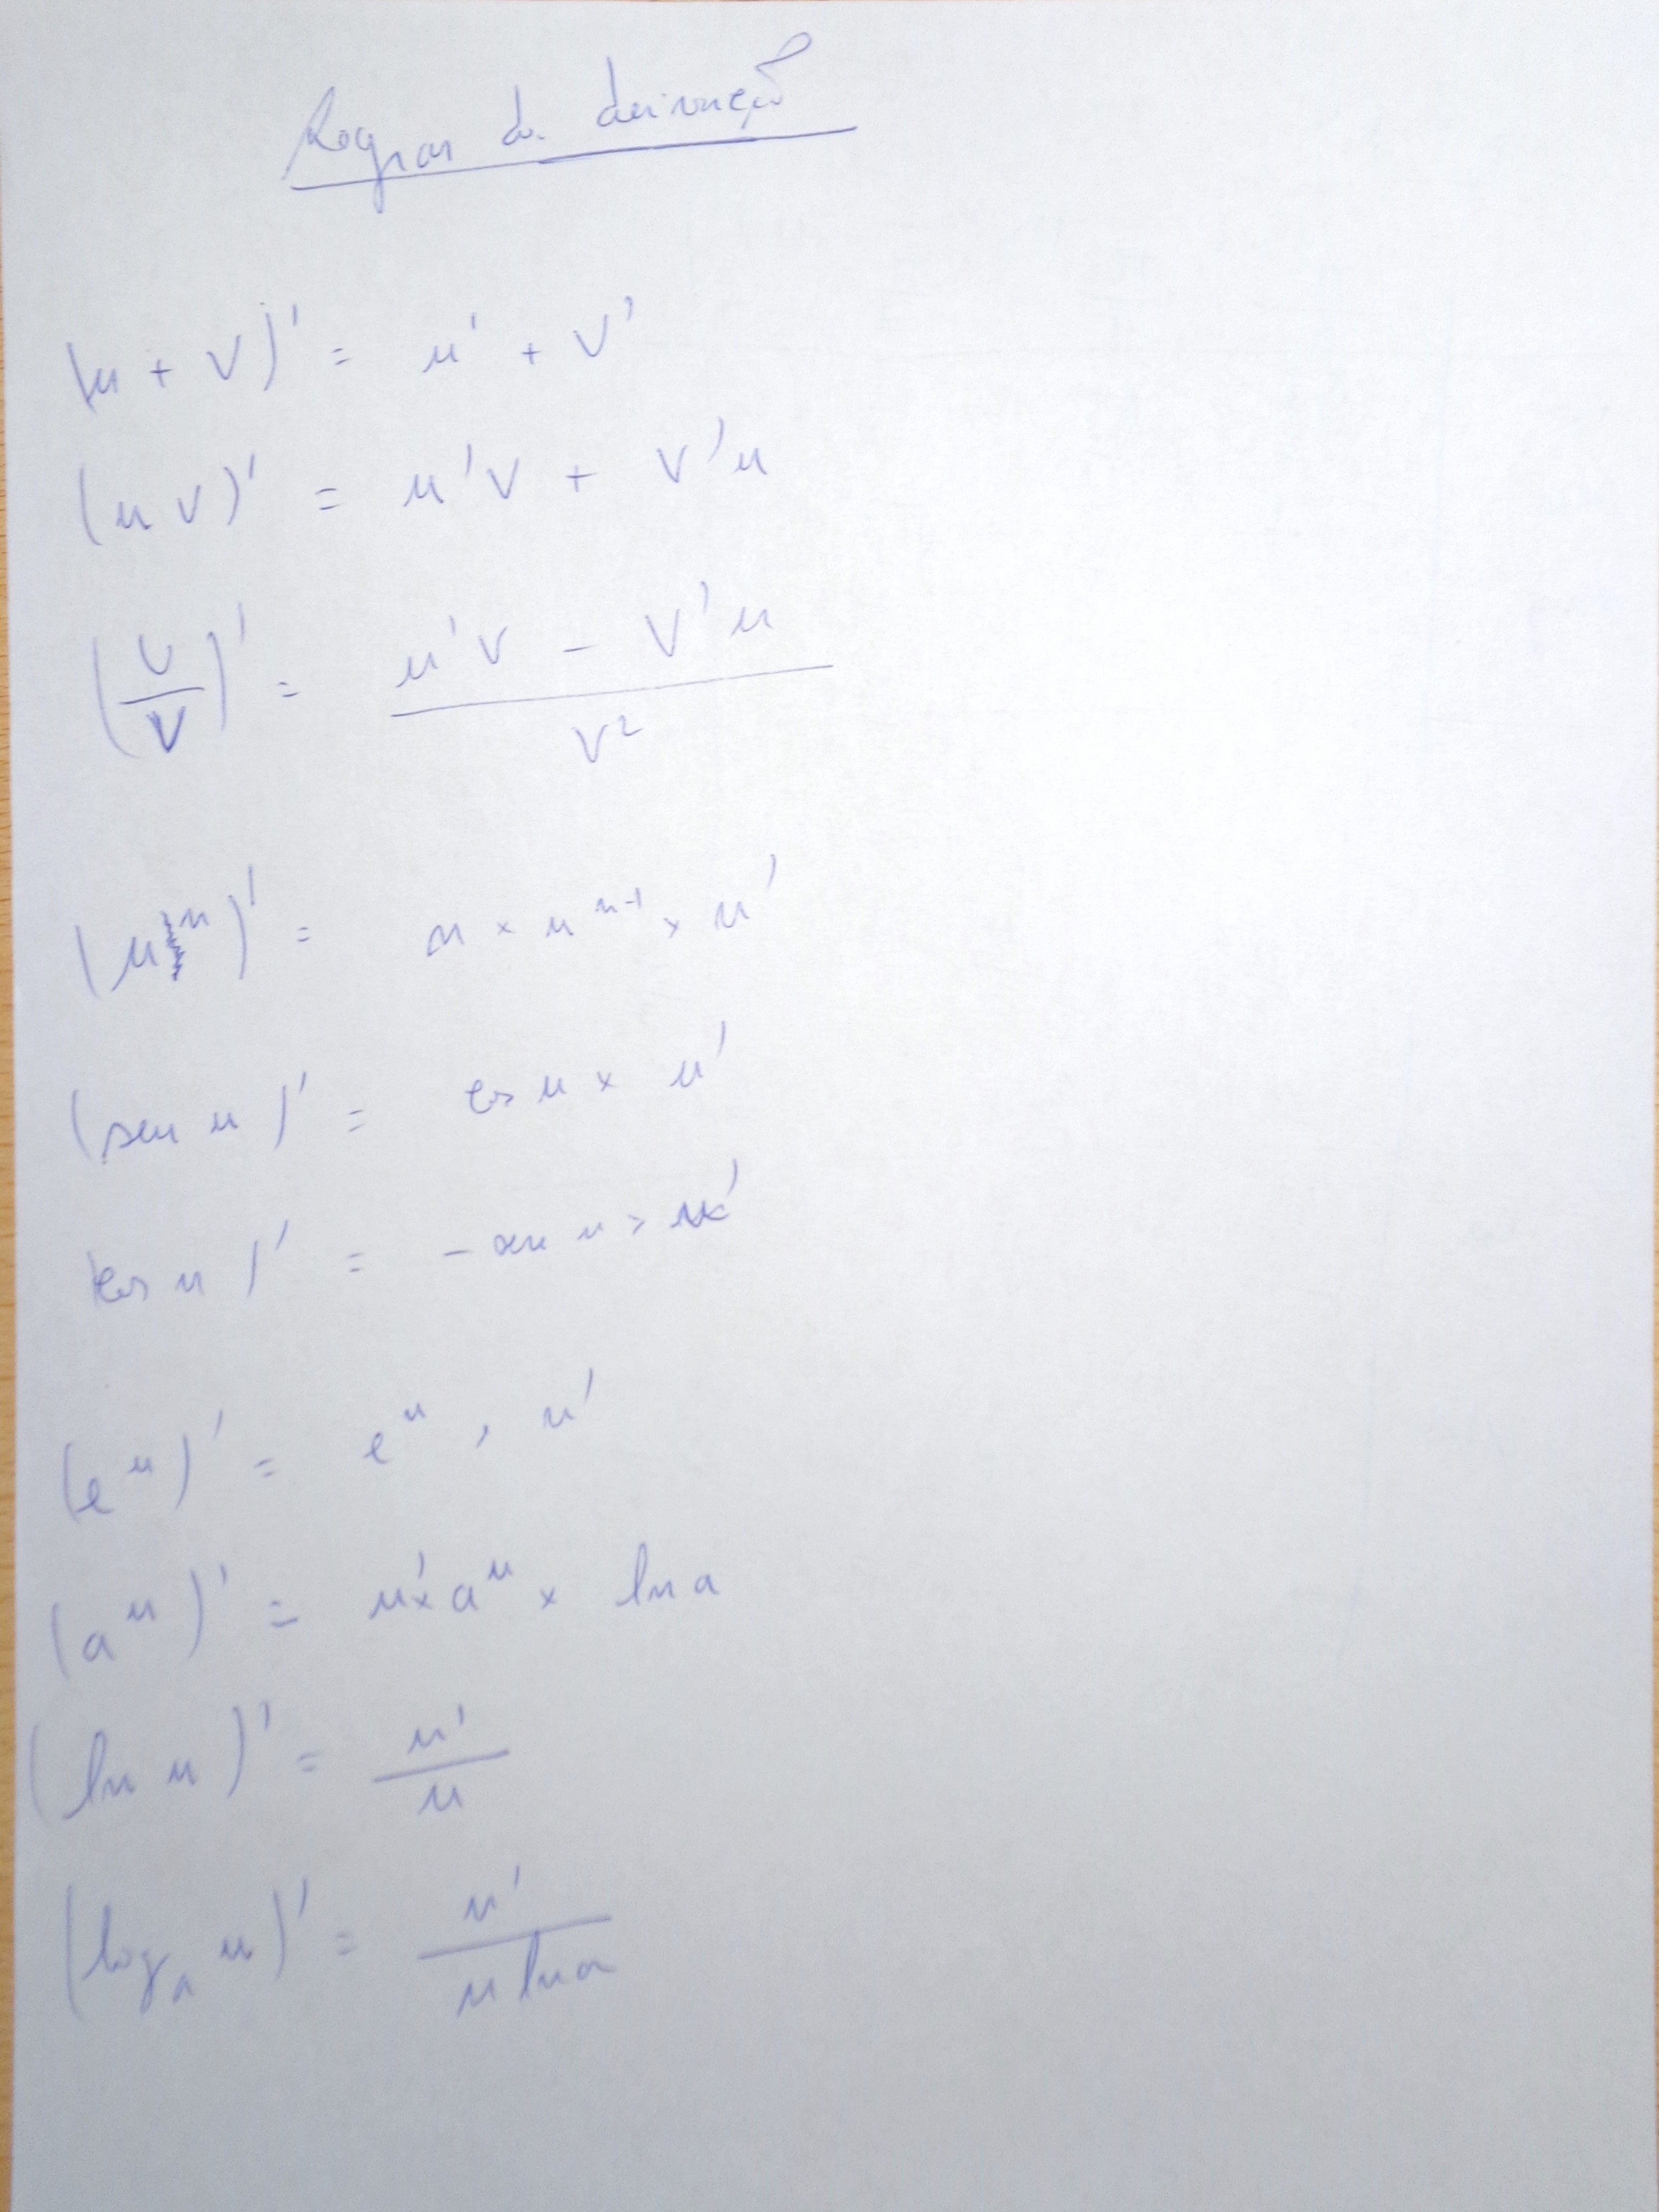 Regras de derivação
(u + v)' = u' + v'
(u v)' = u'v + v'u
(u/v)' = (u'v - v'u)/v²
(uⁿ)' = n × uⁿ⁻¹ × u'
(sen u)' = cos u × u'
(cos u)' = - sen u × u'
(eᵘ)' = eᵘ , u'
(aᵘ)' = u' × aᵘ × ln a
(ln u)' = u'/u
(logₐ u)' = u'/(u ln a)